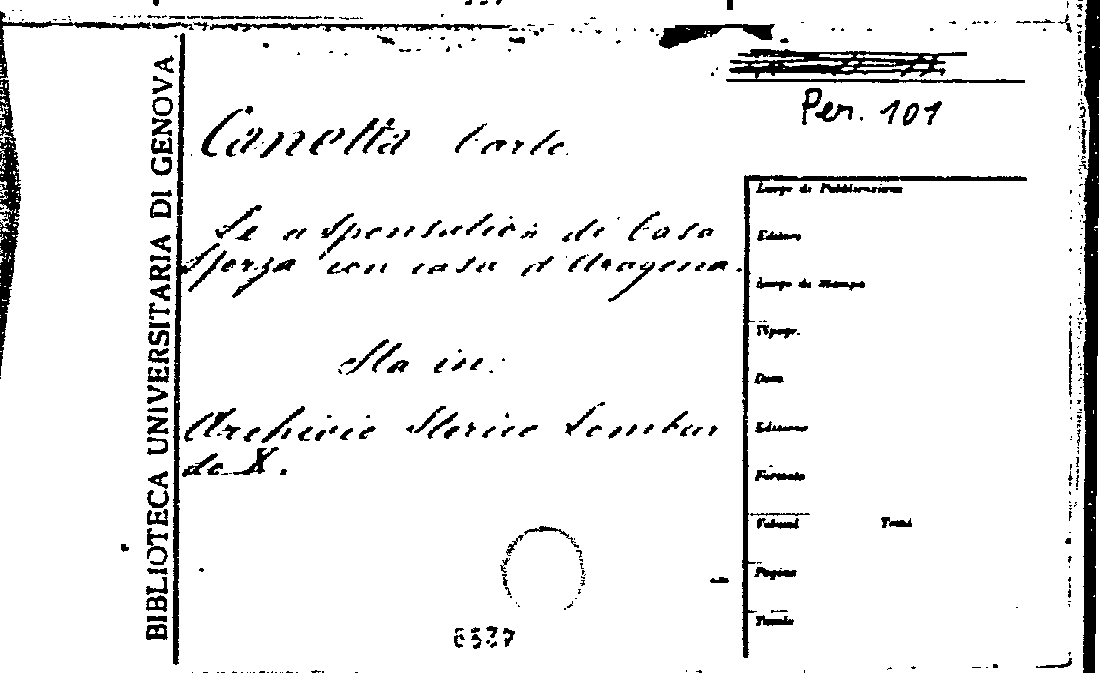 BIBLIOTECA UNIVERSITARIA DI GENOVA
Per. 101
Canetta Carlo
Le sponsalie di Casa
Sforza con casa d'Aragona.
Sta in:
Archivio Storico Lombar
do X.
Luogo di Pubblicazione
Editore
Luogo di Stampa
Tipogr.
Data
Edizione
Formato
Volumi Tomi
Pagine
Tavole